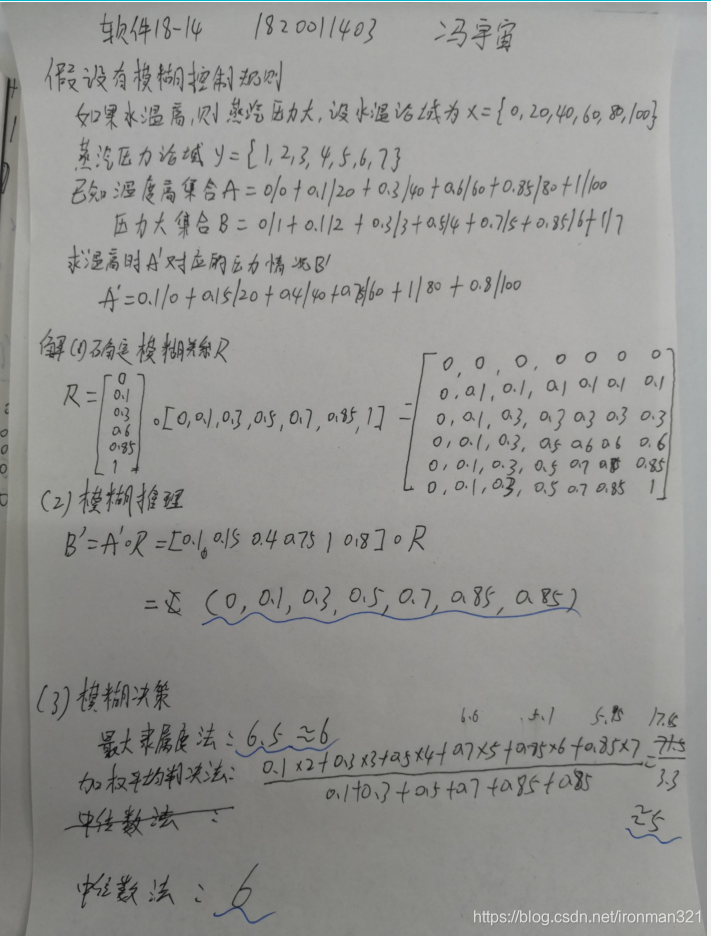 软件18-14 1820011403 冯宇宙
假设有模糊控制规则
如果水温高,则蒸汽压力大,设水温论域为X={0,20,40,60,80,100}
蒸汽压力论域 Y={1,2,3,4,5,6,7}
已知温度高集合A=0/0+0.1/20+0.3/40+0.6/60+0.85/80+1/100
压力大集合B=0/1+0.1/2+0.3/3+0.5/4+0.7/5+0.85/6+1/7
求温高时A'对应的压力情况B'
A'=0.1/0+0.15/20+0.4/40+0.75/60+1/80+0.8/100
解(1)确定模糊关系R
R=[0 0.1 0.3 0.6 0.85 1]∘[0,0.1,0.3,0.5,0.7,0.85,1]=
0, 0, 0, 0 0 0 0
0, 0.1, 0.1, 0.1 0.1 0.1 0.1
0, 0.1, 0.3, 0.3 0.3 0.3 0.3
0, 0.1, 0.3, 0.5 0.6 0.6 0.6
0, 0.1, 0.3, 0.5 0.7 0.85 0.85
0, 0.1, 0.3, 0.5 0.7 0.85 1
(2)模糊推理
B'=A'∘R=[0.1, 0.15 0.4 0.75 1 0.8]∘R
=(0, 0.1, 0.3, 0.5, 0.7, 0.85, 0.85)
(3)模糊决策
最大隶属度法:6.5≈6
6.6 5.1 5.95 17.65
加权平均判决法: 0.1×2+0.3×3+0.5×4+0.7×5+0.85×6+0.85×7
0.1+0.3+0.5+0.7+0.85+0.85
= 3.3
≈5
中位数法:
中位数法:6
https://blog.csdn.net/ironman321